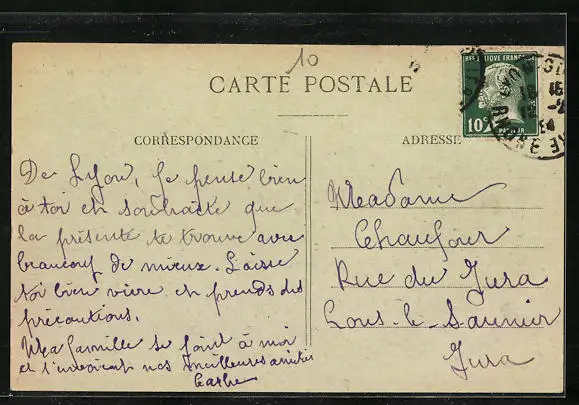 10
CARTE POSTALE
RÉPUBLIQUE FRANÇAISE
10c
PASTEUR
CORRESPONDANCE
ADRESSE
De Lyon, je pense bien
à toi et souhaite que
la présente te trouve avec
beaucoup de mieux. Laisse
toi bien vivre et prends des
précautions.
Ma famille se joint à moi
et t'envoient nos meilleures amitiés
Madame
Chaufour
Rue du Jura
Lons-le-Saunier
Jura